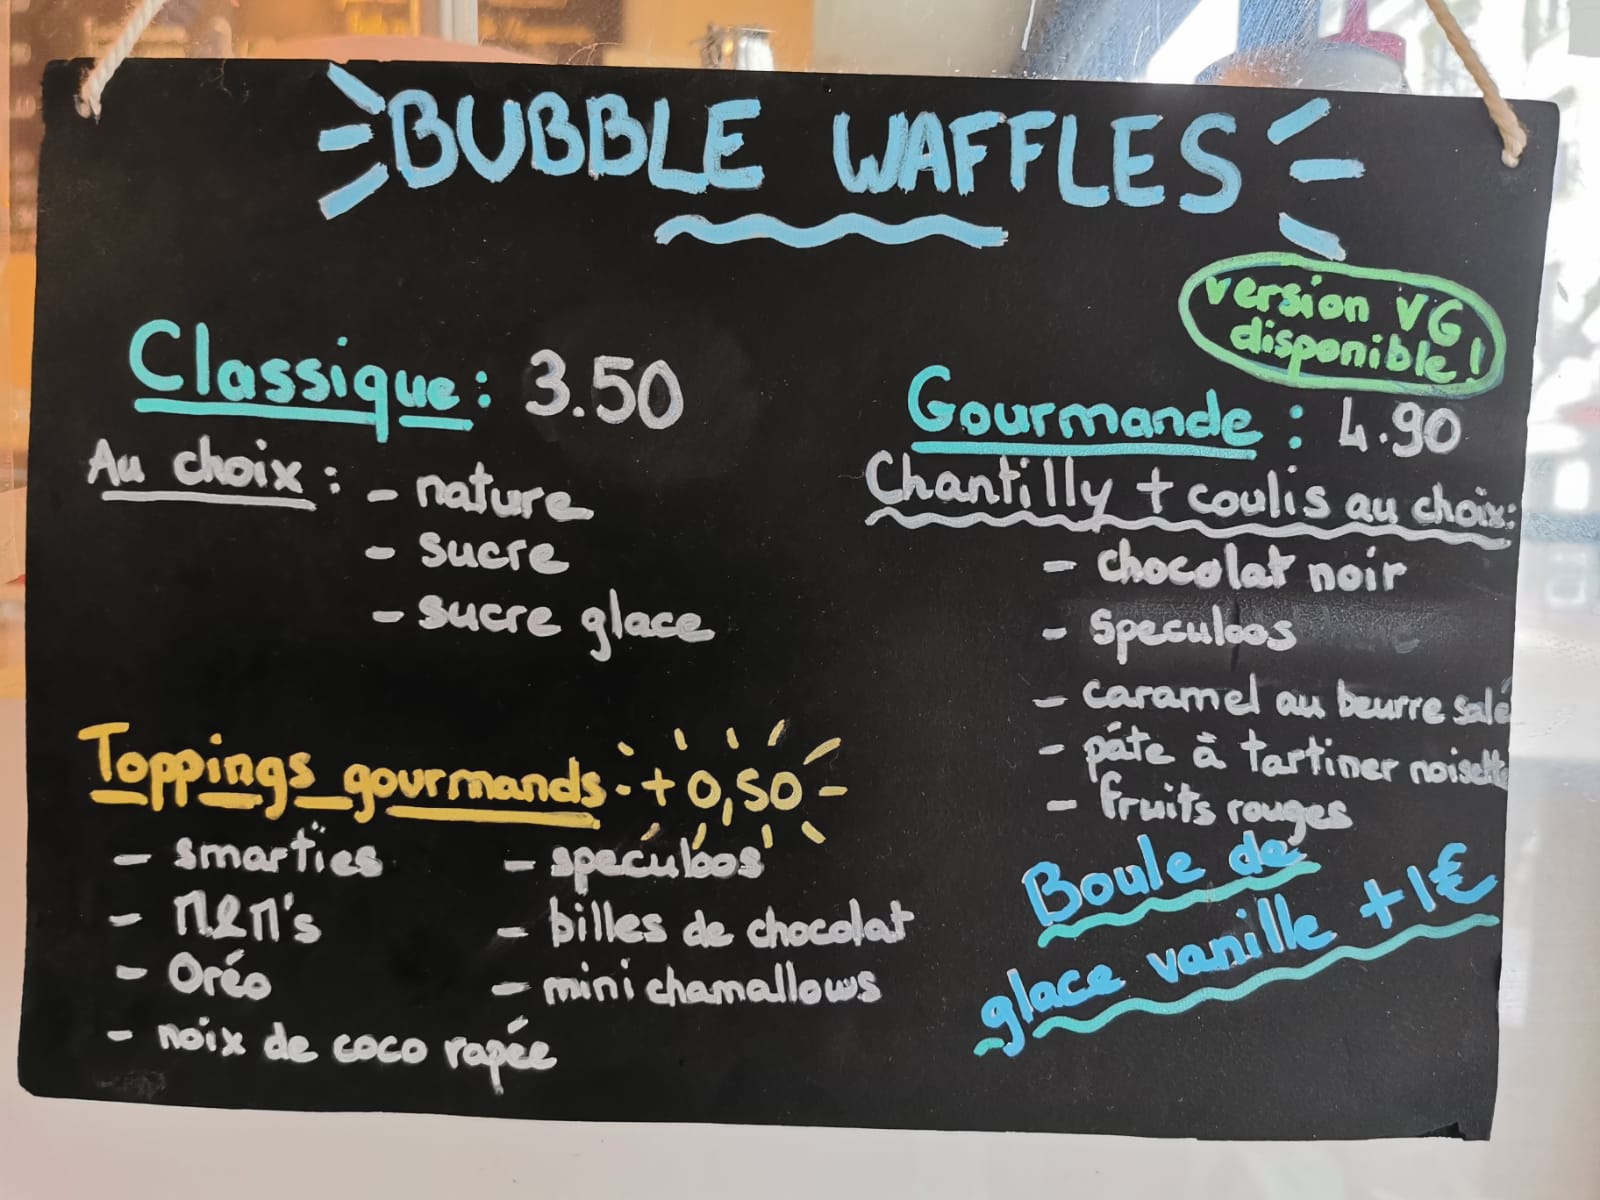 BUBBLE WAFFLES
version VG
disponible !
Classique : 3.50
Au choix : - nature
- sucre
- sucre glace
Gourmande : 4.90
Chantilly + coulis au choix :
- chocolat noir
- speculoos
- caramel au beurre salé
- pâte à tartiner noisette
- fruits rouges
Toppings gourmands + 0,50
- smarties
- M&M's
- Oréo
- noix de coco rapée
- speculoos
- billes de chocolat
- mini chamallows
Boule de
glace vanille +1€